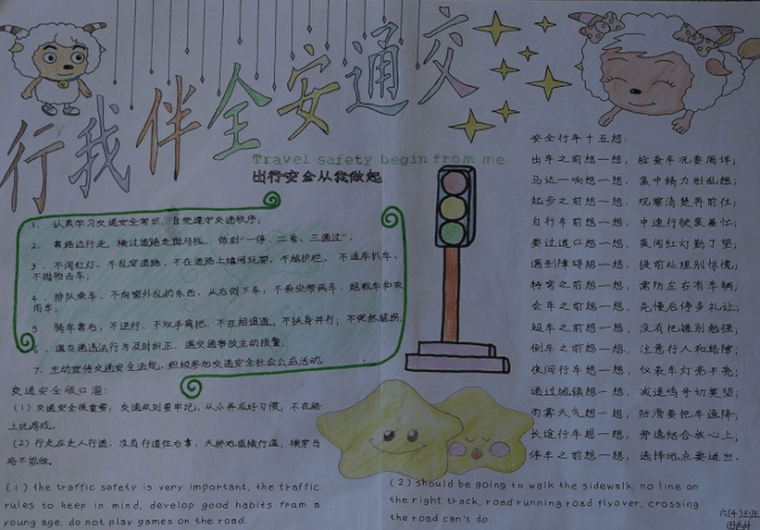 行我伴全安通交
Travel safety begin from me
出行安全从我做起
1、认真学习交通安全常识，自觉遵守交通秩序；
2、靠路边行走，横过道路走斑马线，做到“一停、二看、三通过”；
3、不闯红灯、不乱穿道路、不在道路上嬉闹玩耍，不越护栏、不追车扒车、
不抛物击车；
4、排队乘车、不向窗外乱扔东西，从右侧下车，不乘坐带病车、超载车和农
用车；
5、骑车靠右，不逆行、不双手离把，不互相追逐，不扶身并行；不突然猛拐
6、遇交通违法行为及时纠正、遇交通事故主动报警；
7、主动宣传交通安全法规，积极参加交通安全社会公益活动。
交通安全顺口溜：
(1)交通安全很重要；交通规则要牢记；从小养成好习惯；不在路
上玩游戏。
(2)行走应走人行道，没有行道往右靠，天桥地道横行道，横穿马
路不能做。
(1) the traffic safety is very important, the traffic
rules to keep in mind, develop good habits fram a
young age, do not play games on the road.
(2) should be going to walk the sidewalk, no line on
the right track, road running road flyover, crossing
the road can't do.
安全行车十五想：
出车之前想一想，检查车况要周详；
马达一响想一想，集中精力别乱想；
起步之前想一想，观察清楚再前往；
自行车前想一想，中速行驶莫着忙；
要过道口想一想，莫闯红灯勤了望；
遇到障碍想一想，提前处理别惊慌；
转弯之前想一想，需防左右有车辆；
会车之前想一想，先慢后停多礼让；
超车之前想一想，没有把握别勉强；
倒车之前想一想，注意行人和路障；
夜间行车想一想，仪表车灯亮不亮；
通过城镇想一想，减速鸣号切莫望；
雨雾天气想一想，防滑要把车速降；
长途行车想一想，劳逸结合放心上；
停车之前想一想，选择地点要适当。